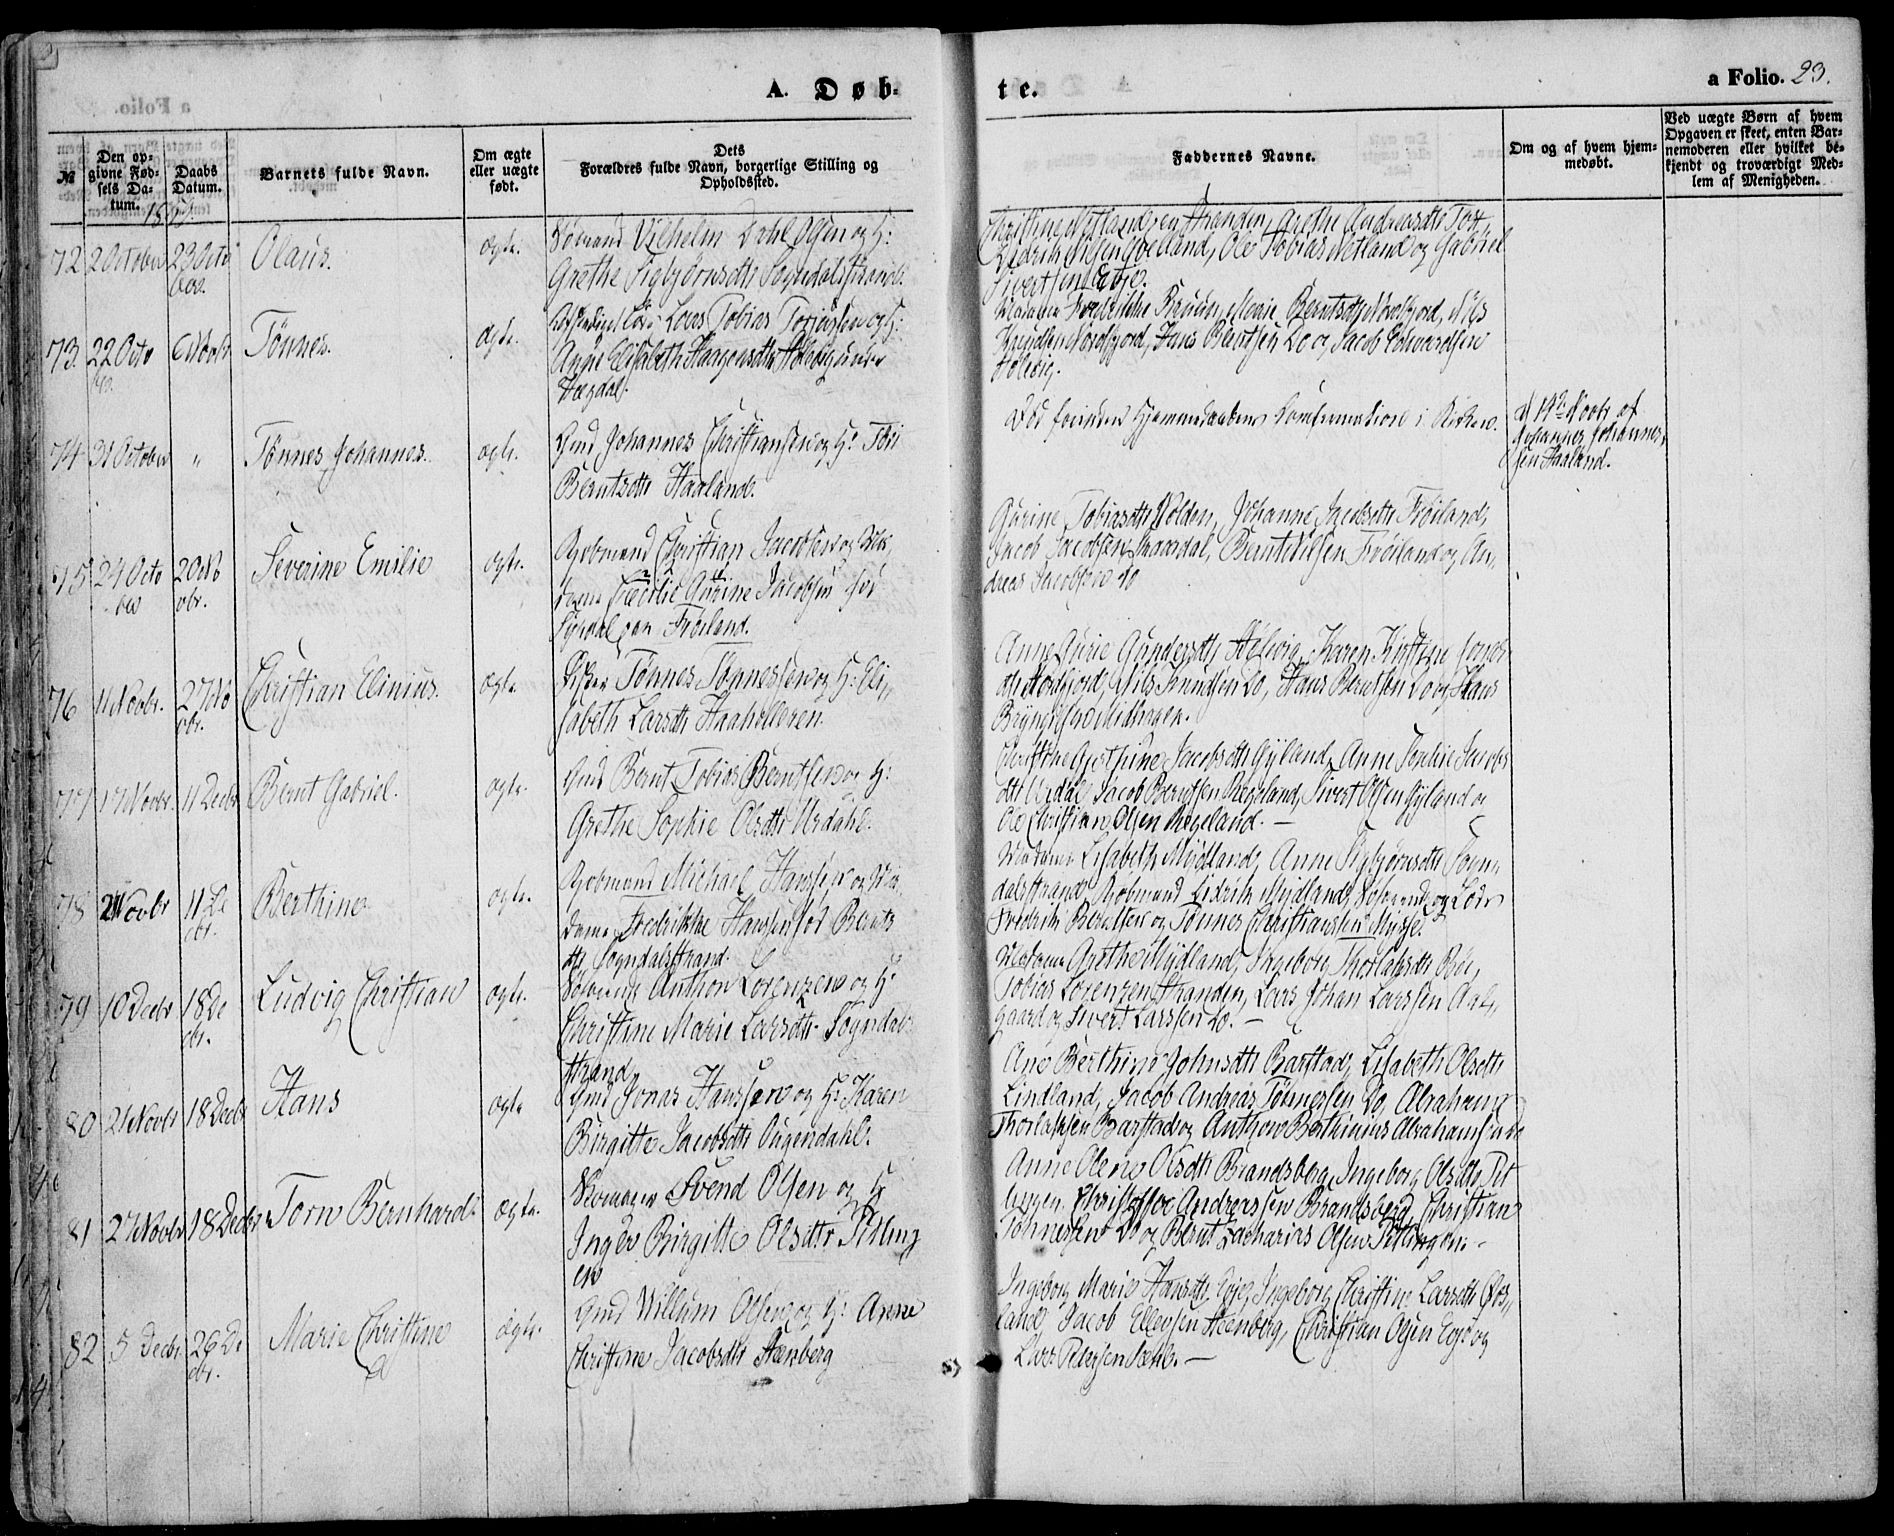 A. Døb-
te.
a Folio. 23.
№
Den op-
givne Fød-
sels Da-
tum.
Daabs
Datum.
Barnets fulde Navn.
Om ægte
eller uægte
født.
Dets
Forældres fulde Navn, borgerlige Stilling og
Opholdssted.
Faddernes Navne.
Om og af hvem hjem-
medøbt.
Ved uægte Børn af hvem
Opgaven er skeet, enten Bar-
nemoderen eller hvilket be-
kjendt og troværdigt Med-
lem af Menigheden.
72 2 October 23 Octo
ber.
Olaus.
ægte.
Sømand Vilhelm Dahl Olsen og H:
Grethe Sigbjørnsdtr Sogndalsstrand.
Stranden, Grethe Andreasdtr
Didrik Olsen Ole Tobias Netland og Gabriel
Sivertsen Eoje.
73. 22 Octo
ber.
6 Novbr.
Tønnes.
ægte.
Lars Tobias Torjussen og H:
Anne Elisabeth Haagensdtr
Hægdal.
Madame Fredrikke Marie Berntsdtr Nordfjord, Nils
Knudsen Nordfjord, Hans Berntsen Do og Jacob Edvardsen
Hølevig.
74 31 October "
Tønnes Johannes.
ægte.
Gmd Johannes Christiansen og H: Tøri
Berntsdtr Haaland.
Død forinden Hjemmedaabens Comfirmation i Kirken.
d 14de Novbr af
Johannes Johannes-
sen Haaland.
75 24 Octo
ber
20 No
vbr.
Severine Emilie
ægte.
Kjøbmand Christian Jacobsen og Ma-
dame Cecilie Gurine Jacobsen
paa Frøiland.
Gurine Tobiasdtr Volden, Johanne Jacobsdtr Frøiland,
Jacob Jacobsen Bernt Nilsen Frøiland og An-
dreas Jacobsen do
76 11 Novbr. 27 No
vbr.
Christian Elinius.
ægte.
Fisker Tønnes Tønnessen og H: Eli-
sabeth Larsdtr Haahelleren.
Anne Gurie Gundersdtr Hølevig, Karen Kirstine
Nordfjord, Nils Knudsen Do, Hans Berntsen Do og Hans
Midhagen.
77 17 Novbr. 11 Decbr
Bernt Gabriel.
ægte.
Gmd Bernt Tobias Berntsen og H:
Grethe Sophie Olsdtr Urdahl.
Jacobsdtr Gyland, Anne Sophie Jacobs
dtr Urdal, Jacob Berntsen Regeland, Sivert Olsen Gyland og
Ole Christian Olsen Regeland. —
78 21 Novbr 11 De
cbr.
Berthine
ægte.
Kjøbmand Michael Hanssen og Ma-
dame Fredrikke Hanssen fød Bernts
dtr Sogndalsstrand.
Madame Lisabeth Mydland, Anne Sigbjørnsdtr Sogn-
dalsstrand, Kjøbmand Didrik Mydland, og Lods
Fredrik Berntsen og Tønnes Christianssen Mysse.
79 10 Decbr 18 De
cbr.
Ludvig Christian
ægte.
Sømand Anthon Lorenzen og H:
Christine Marie Larsdtr Sogndals-
strand
Madame Grethe Mydland, Ingeborg Thorlaksdtr
Tobias Lorenzen Stranden, Lars Johan Larssen Aal-
gaard og Sivert Larssen Do. —
80 21 Novbr 18 Decbr
Hans
ægte
Gmd Jonas Hanssen og H: Karen
Birgitte Jacobsdtr Ougendahl.
Ane Berthine Johnsdtr Barstad, Lisabeth Olsdtr
Lindland, Jacob Andreas Tønnessen Do, Abraham
Thorlaksen Barstad og Anthon Berthinius Abrahamsen do
81 27 Novbr 18 Decbr
Torn Bernhard.
ægte.
Svend Olsen og H
Inger Birgitte Olsdtr Titling
en
Anne Olene Olsdtr Brandsberg, Ingeborg Olsdtr Tit
lingen, Christoffer Andreassen Brandsberg, Christian
Tønnessen Do og Bernt Zacharias Olsen Titlingen.
82 5 Decbr 26 De
cbr.
Marie Christine
ægte.
Gmd Willum Olsen og H: Anne
Christine Jacobsdtr Steenberg
Ingeborg Marie Hansdtr Eoje, Ingeborg Christine Larsdtr
Jacob Ellevsen Steenberg, Christian Olsen Egje og
Lars Pedersen —